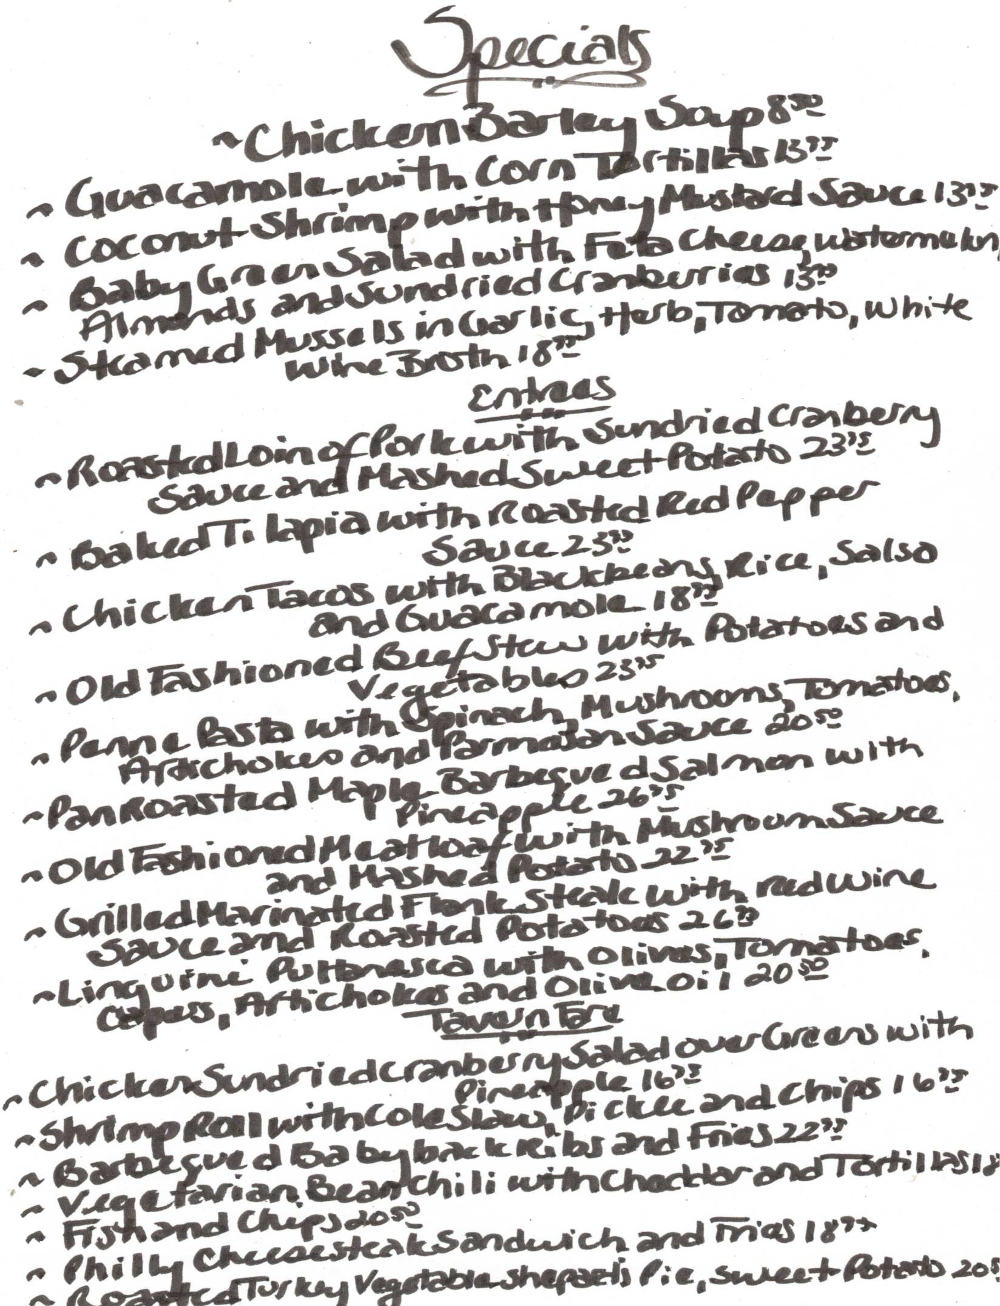 Specials
~Chicken Barley Soup 8 50
~ Guacamole with Corn Tortillas 13 75
~ Coconut Shrimp with Honey Mustard Sauce 13 75
~ Baby Green Salad with Feta Cheese, watermelon,
Almonds and Sundried Cranberries 13
~ Steamed Mussels in Garlic, Herb, Tomato, White
Wine Broth 18
Entrees
~Roasted Loin of Pork with Sundried Cranberry
Sauce and Mashed Sweet Potato 23 75
~ Baked Tilapia with Roasted Red Pepper
Sauce 23
~ Chicken Tacos with Blackbeans, Rice, Salsa
and Guacamole 18
~ Old Fashioned Beef Stew with Potatoes and
Vegetables 23 75
~ Penne Pasta with Spinach, Mushrooms, Tomatoes,
Artichokes and Parmesan Sauce 20 50
~Pan Roasted Maple Barbequed Salmon with
Pineapple 26 75
~Old Fashioned Meatloaf with Mushroom Sauce
and Mashed Potato 22 75
~ Grilled Marinated Flank Steak with red wine
Sauce and Roasted Potatoes 26
~Linguini Puttanesca with Olives, Tomatoes,
Capers, Artichokes and Olive oil 20 50
Tavern Fare
~Chicken Sundried Cranberry Salad over Greens with
Pineapple 16 75
~Shrimp Roll with Cole Slaw, Pickle and Chips 16 75
~ Barbequed Babyback Ribs and Fries 22 75
~ Vegetarian Bean Chili with Cheddar and Tortillas 18
~ Fish and Chips 20 50
~ Philly Cheesesteak Sandwich and Fries 18 75
~ Roasted Turkey Vegetable Shepard's Pie, Sweet Potato 20